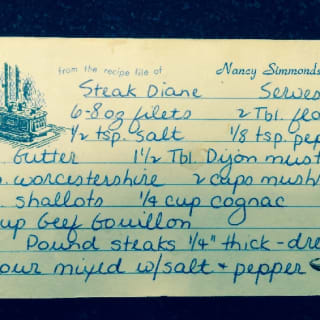 from the recipe file of Nancy Simmonds
Steak Diane Serves
6-8 oz filets 2 Tbl. flo
1/2 tsp. salt 1/8 tsp. pep
. butter 1 1/2 Tbl. Dijon must
. worcestershire 2 cups mush
. shallots 1/4 cup cognac
up beef bouillon
Pound steaks 1/4" thick - dre
our mixed w/salt + pepper